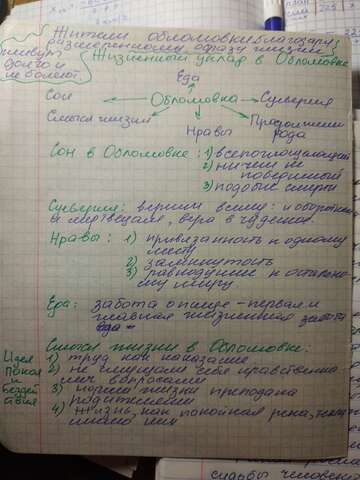 Жители обломовки благодаря
размеренному образу жизни
живут
долго и
не болеют
Жизненный уклад в Обломовке
Еда
Сон
Обломовка
Суеверия
Смысл жизни
Нравы
Продолжение
рода
Сон в Обломовке: 1) всепоглощающий
2) ничем не
победимый
3) подобие смерти
Суеверия: верили всему: и оборотням
и мертвецам, вера в чудеса.
Нравы: 1) привязанность к одному
месту
2) замкнутость
3) равнодушие к остально-
му миру
Еда: забота о пище - первая и
главная жизненная забота
Смысл жизни в Обломовке:
Идея
покоя
и
бездей
ствия
1) труд как наказание
2) не смущали себя нравственны-
ми вопросами
3) норма жизни преподана
родителями
4) жизнь, как покойная река, текла
мимо них
судьбы человека